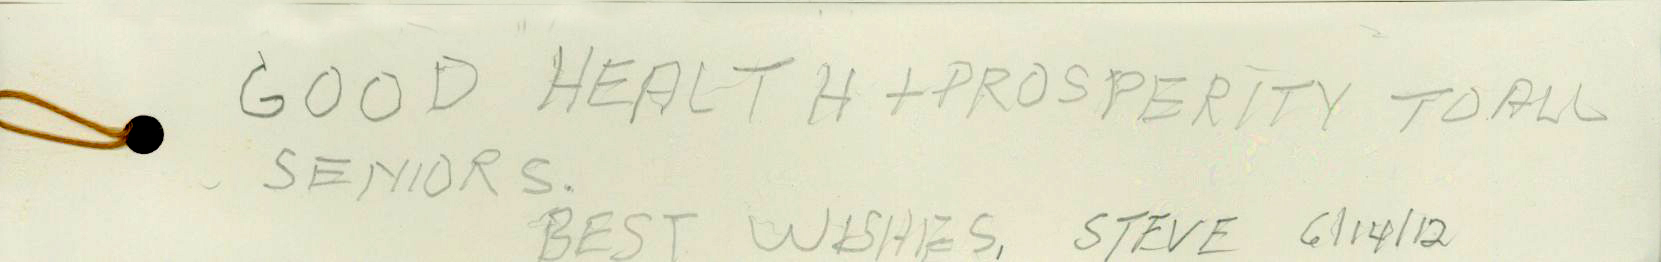 GOOD HEALTH + PROSPERITY TO ALL
SENIORS.
BEST WISHES, STEVE 6/14/12